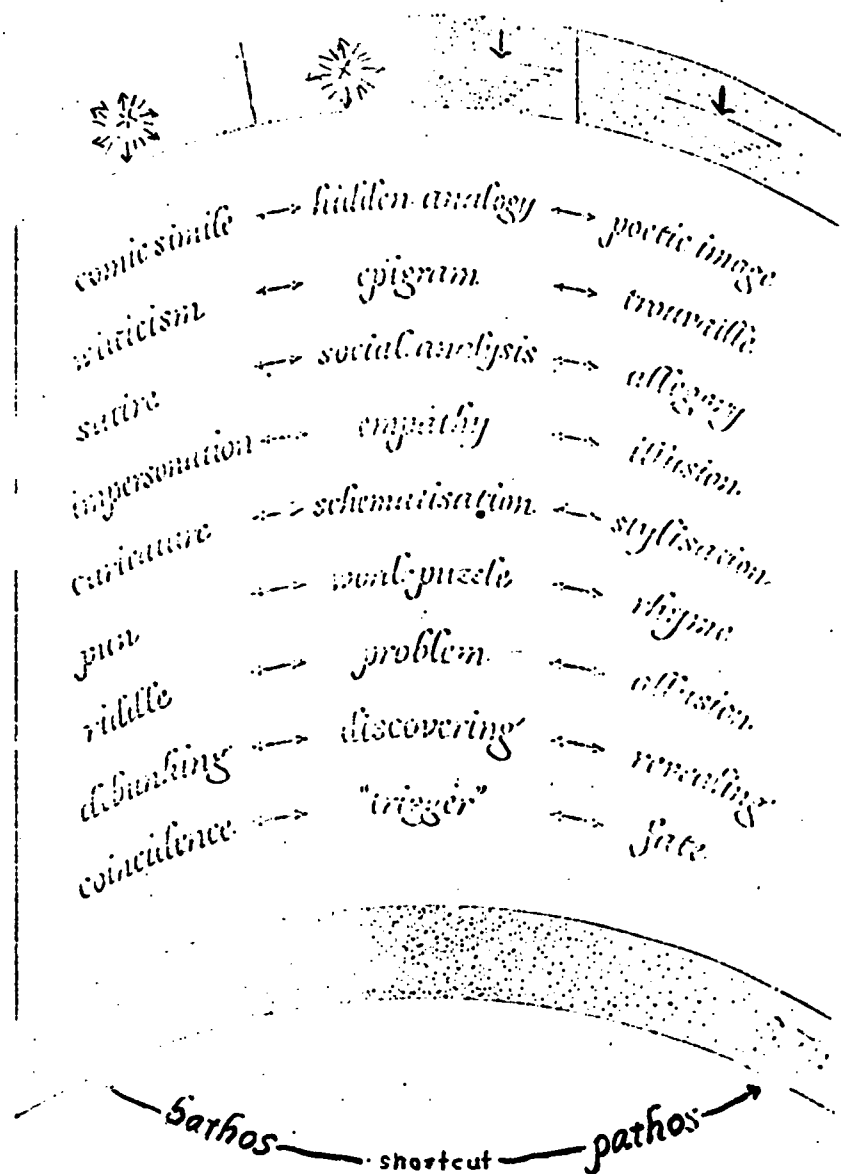 comic simile ↔ hidden analogy ↔ poetic image
witticism ↔ epigram ↔ trouvaille
satire ↔ social analysis ↔ allegory
impersonation ↔ empathy ↔ illusion
caricature ↔ schematisation ↔ stylisation
pun ↔ word puzzle ↔ rhyme
riddle ↔ problem ↔ allusion
debunking ↔ discovering ↔ revealing
coincidence ↔ "trigger" ↔ fate
bathos shortcut pathos